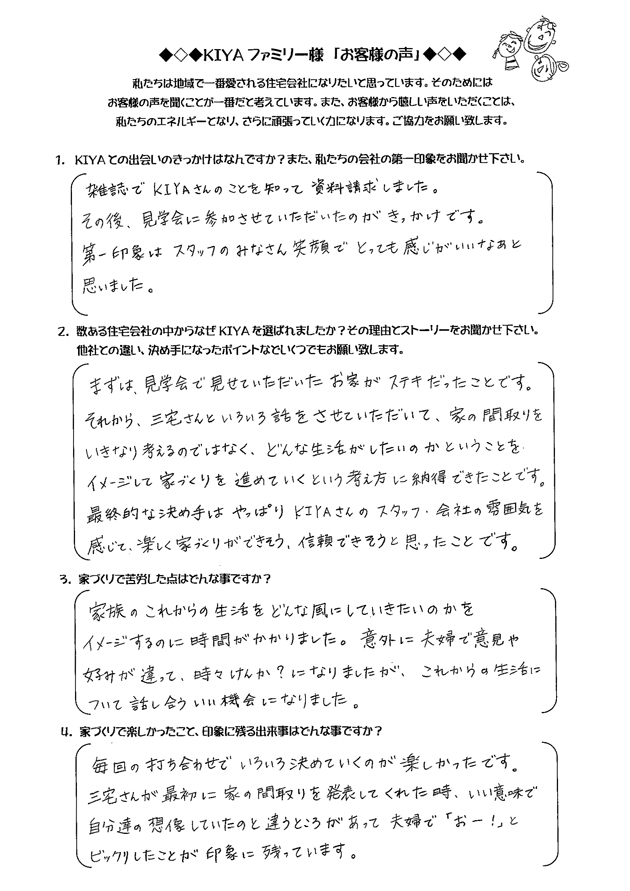 ◆◇◆KIYAファミリー様「お客様の声」◆◇◆
私たちは地域で一番愛される住宅会社になりたいと思っています。そのためには
お客様の声を聞くことが一番だと考えています。また、お客様から嬉しい声をいただくことは、
私たちのエネルギーとなり、さらに頑張っていく力になります。ご協力をお願い致します。
1. KIYAとの出会いのきっかけはなんですか？また、私たちの会社の第一印象をお聞かせ下さい。
雑誌でKIYAさんのことを知って資料請求しました。
その後、見学会に参加させていただいたのがきっかけです。
第一印象はスタッフのみなさん笑顔でとっても感じがいいなぁと
思いました。
2. 数ある住宅会社の中からなぜKIYAを選ばれましたか？その理由とストーリーをお聞かせ下さい。
他社との違い、決め手になったポイントなどいくつでもお願い致します。
まずは、見学会で見せていただいたお家がステキだったことです。
それから、三宅さんといろいろ話をさせていただいて、家の間取りを
いきなり考えるのではなく、どんな生活がしたいのかということを
イメージして家づくりを進めていくという考え方に納得できたことです。
最終的な決め手はやっぱりKIYAさんのスタッフ・会社の雰囲気を
感じて、楽しく家づくりができそう、信頼できそうと思ったことです。
3. 家づくりで苦労した点はどんな事ですか？
家族のこれからの生活をどんな風にしていきたいのかを
イメージするのに時間がかかりました。意外に夫婦で意見や
好みが違って、時々けんか？になりましたが、これからの生活に
ついて話し合ういい機会になりました。
4. 家づくりで楽しかったこと、印象に残る出来事はどんな事ですか？
毎回の打ち合わせでいろいろ決めていくのが楽しかったです。
三宅さんが最初に家の間取りを発表してくれた時、いい意味で
自分達の想像していたのと違うところがあって夫婦で「おー！」と
ビックリしたことが印象に残っています。